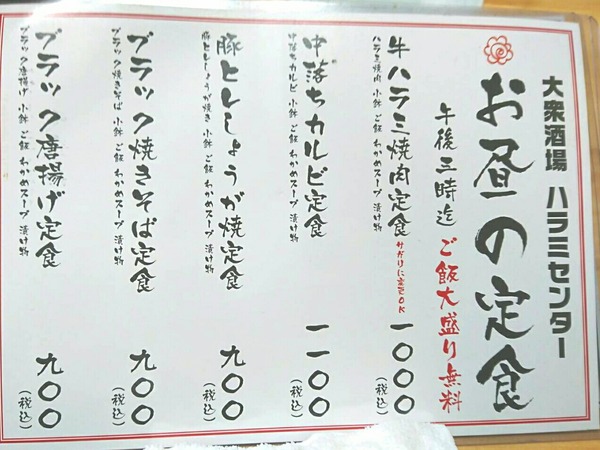 大衆酒場 ハラミセンター
お昼の定食
午後三時迄 ご飯大盛り無料
牛ハラミ焼肉定食 サガリに変更OK 一〇〇〇(税込)
ハラミ焼肉 小鉢 ご飯 わかめスープ 漬け物
中落ちカルビ定食 一一〇〇(税込)
中落ちカルビ 小鉢 ご飯 わかめスープ 漬け物
豚ヒレしょうが焼定食 九〇〇(税込)
豚ヒレしょうが焼き 小鉢 ご飯 わかめスープ 漬け物
ブラック焼きそば定食 九〇〇(税込)
ブラック焼きそば 小鉢 ご飯 わかめスープ 漬け物
ブラック唐揚げ定食 九〇〇(税込)
ブラック唐揚げ 小鉢 ご飯 わかめスープ 漬け物